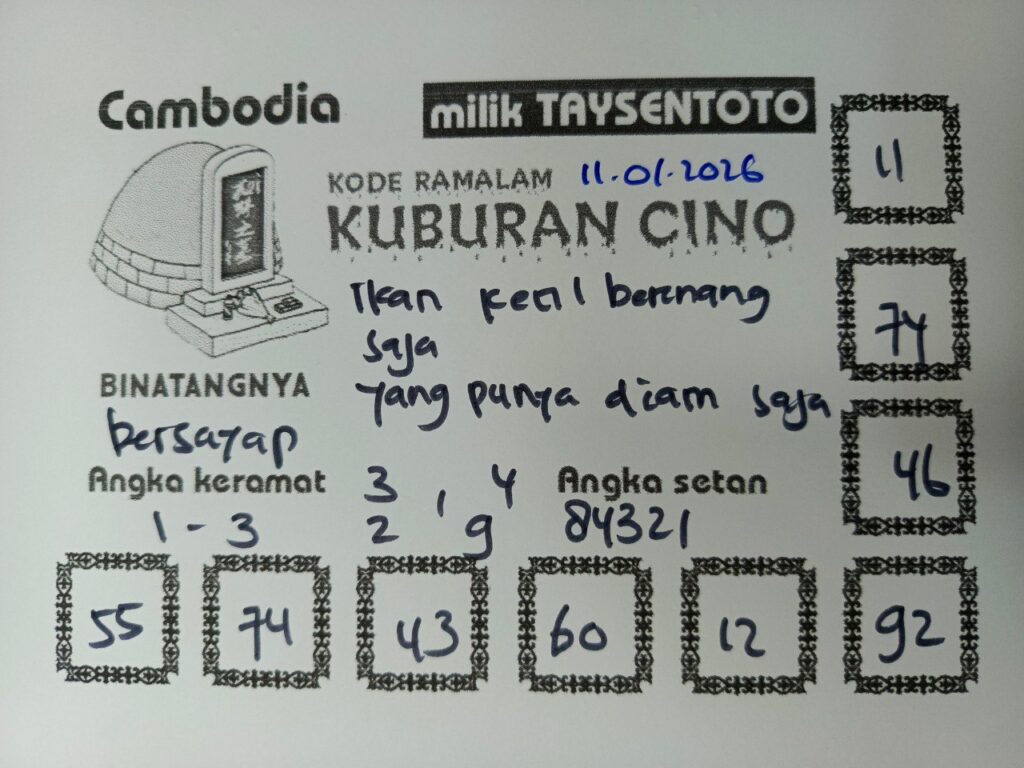 Cambodia
milik TAYSENTOTO
KODE RAMALAM 11.01.2026
KUBURAN CINO
Ikan kecil berenang
saja
yang punya diam saja
BINATANGNYA
bersayap
Angka keramat
1 - 3
3 , 4
2 9
Angka setan
84321
11
74
46
55
74
43
60
12
92